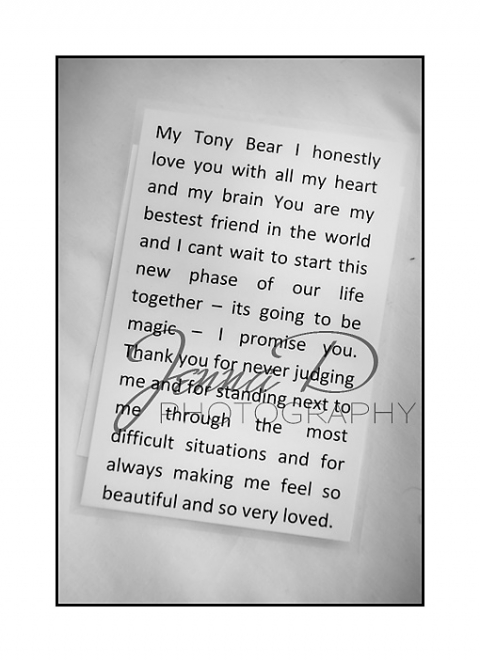 My Tony Bear I honestly
love you with all my heart
and my brain You are my
bestest friend in the world
and I cant wait to start this
new phase of our life
together – its going to be
magic – I promise you.
Thank you for never judging
me and for standing next to
me through the most
difficult situations and for
always making me feel so
beautiful and so very loved.
Jenna D
PHOTOGRAPHY